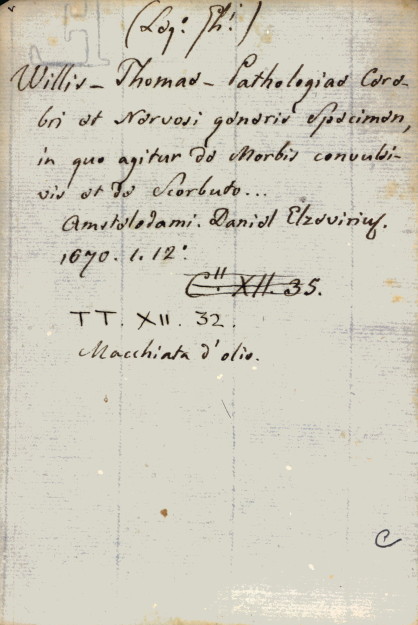 (Leg.º Ph.i)
Willis - Thomae - Pathologiae Cere-
bri et Nervosi generis Specimen,
in quo agitur de Morbis convulsi-
vis et de Scorbuto...
Amstelodami. Daniel Elzevirius.
1670. 1. 12º
C.II XII. 35.
TT. XII. 32.
Macchiata d'olio.
C